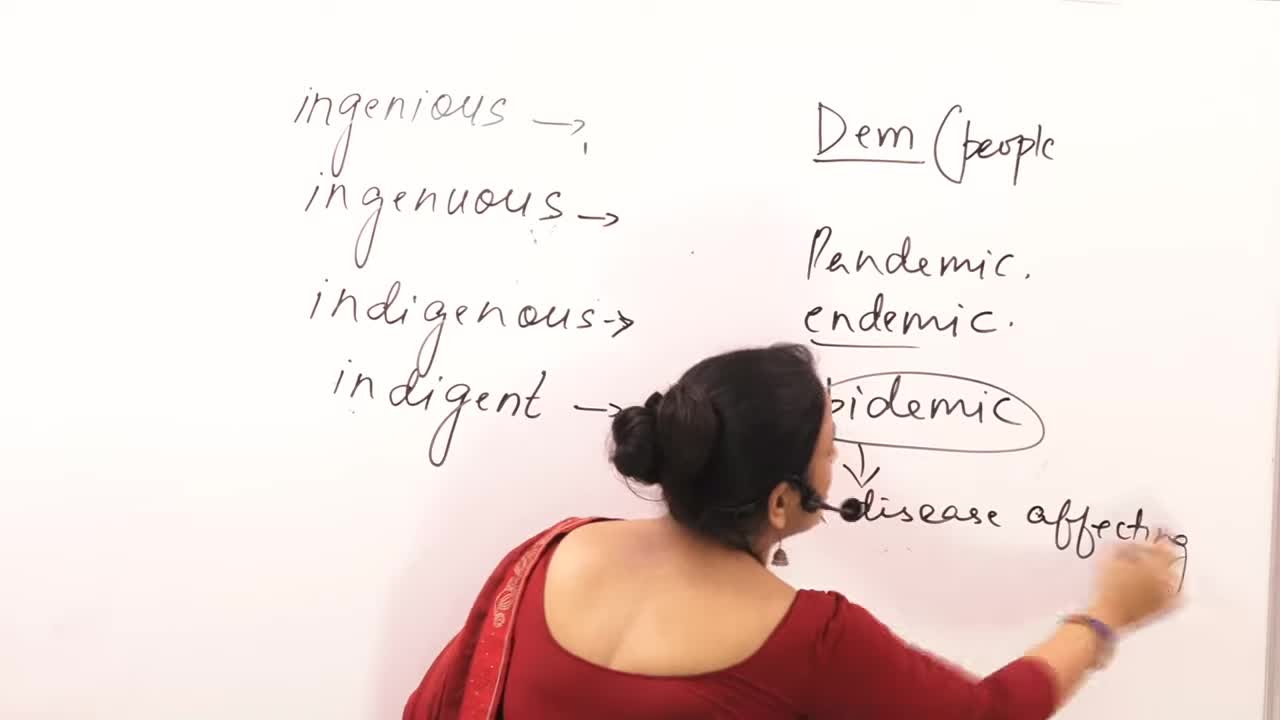 ingenious →
ingenuous →
indigenous →
indigent →
Dem (people
Pandemic.
endemic.
pidemic
disease affecting